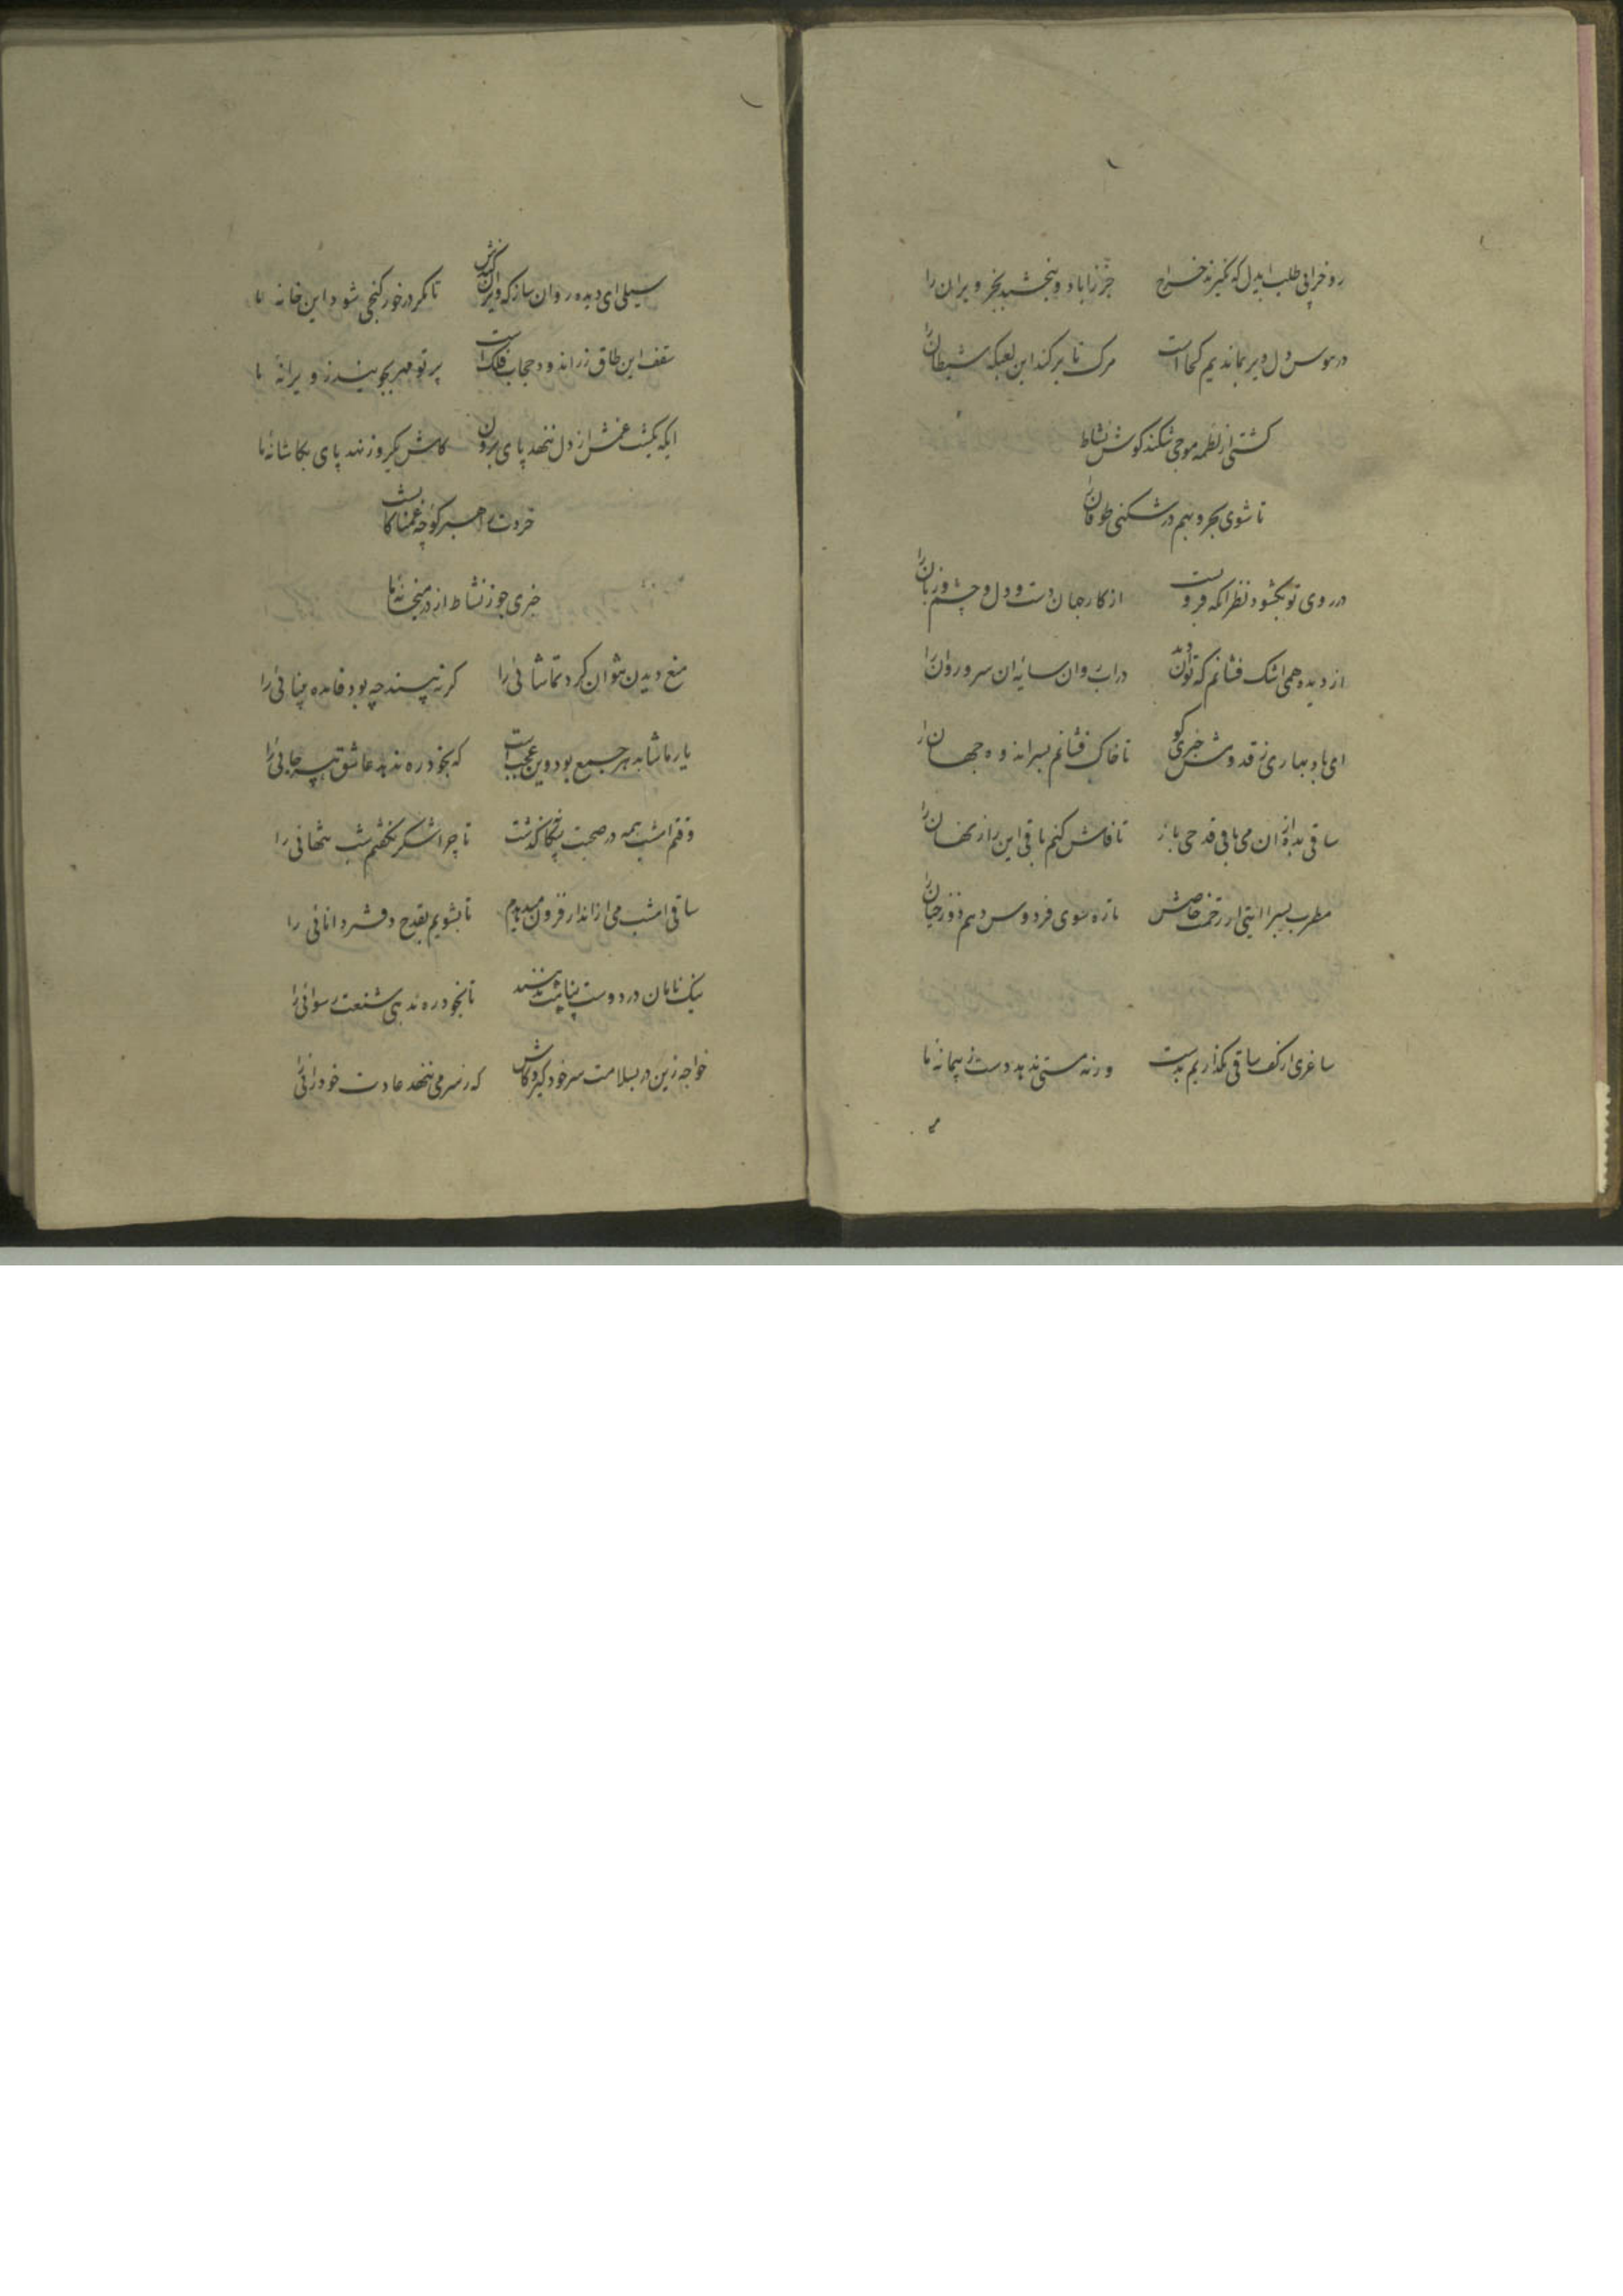 رو خرابی طلب ایدل که نگیرند خراج جز ز اباد و نبخشید بجز ویران را
در هوس دل و بر بماندیم کجا است مرک تا بر کند این لعبکه شیطان را
کشتی از لطمه موجی شکند کوش نشاط
تا شوی بحر و بهم در شکنی طوفان را
در روی تو بکشود نظر انکه فرو بست از کار جهان دست و دل و چشم و زبان را
از دیده همی اشک فشانم که توان دید در اب روان سایه ان سرو روان را
ای باد بهاری ز قدومش خبری کو تا خاک فشانم بسر اندوه جهان را
ساقی بده از ان می باقی قدحی باز تا فاش کنم باقی این راز نهان را
مطرب بسرا ایتی از رحمت خاصش تا ره سوی فردوس دهم دوزخیان را
ساغری از کف ساقی بگذاریم بدست ورنه مستی ندهد دست ز پیمانه ما
سیلی ای دیده روان ساز که ویران کندش تا مکر در خور کنجی شود این خانه ما
سقف این طاق زراندود حجاب فلک است پرتو مهر بجویند ز ویرانه ما
ایکه یکشب غمش از دل ننهد پای برون کاش یکروز نهد پای بکاشانه ما
خردت راهبر کوچه غمناکانست
خبری جو ز نشاط از در میخانه ما
منع دیدن نتوان کرد تماشائی را کر نه بیند چه بود فایده بینائی را
یار ما شاهد هر جمع بود وین عجب است که بخود ره ندهد عاشق هر جائی را
وقتم امشب همه در صحبت بیکانه گذشت تا چرا شکر نکفتم شب تنهائی را
ساقی امشب می از اندازه فزون میدهدم تا بشویم بقدح دفتر دانائی را
نیک نامان در دوست پناهت ندهند تا بخود ره ندهی شنعت رسوائی را
خواجه زین در بسلامت سر خود گیر و کاش که ز سر می ننهد عادت خودرائی را